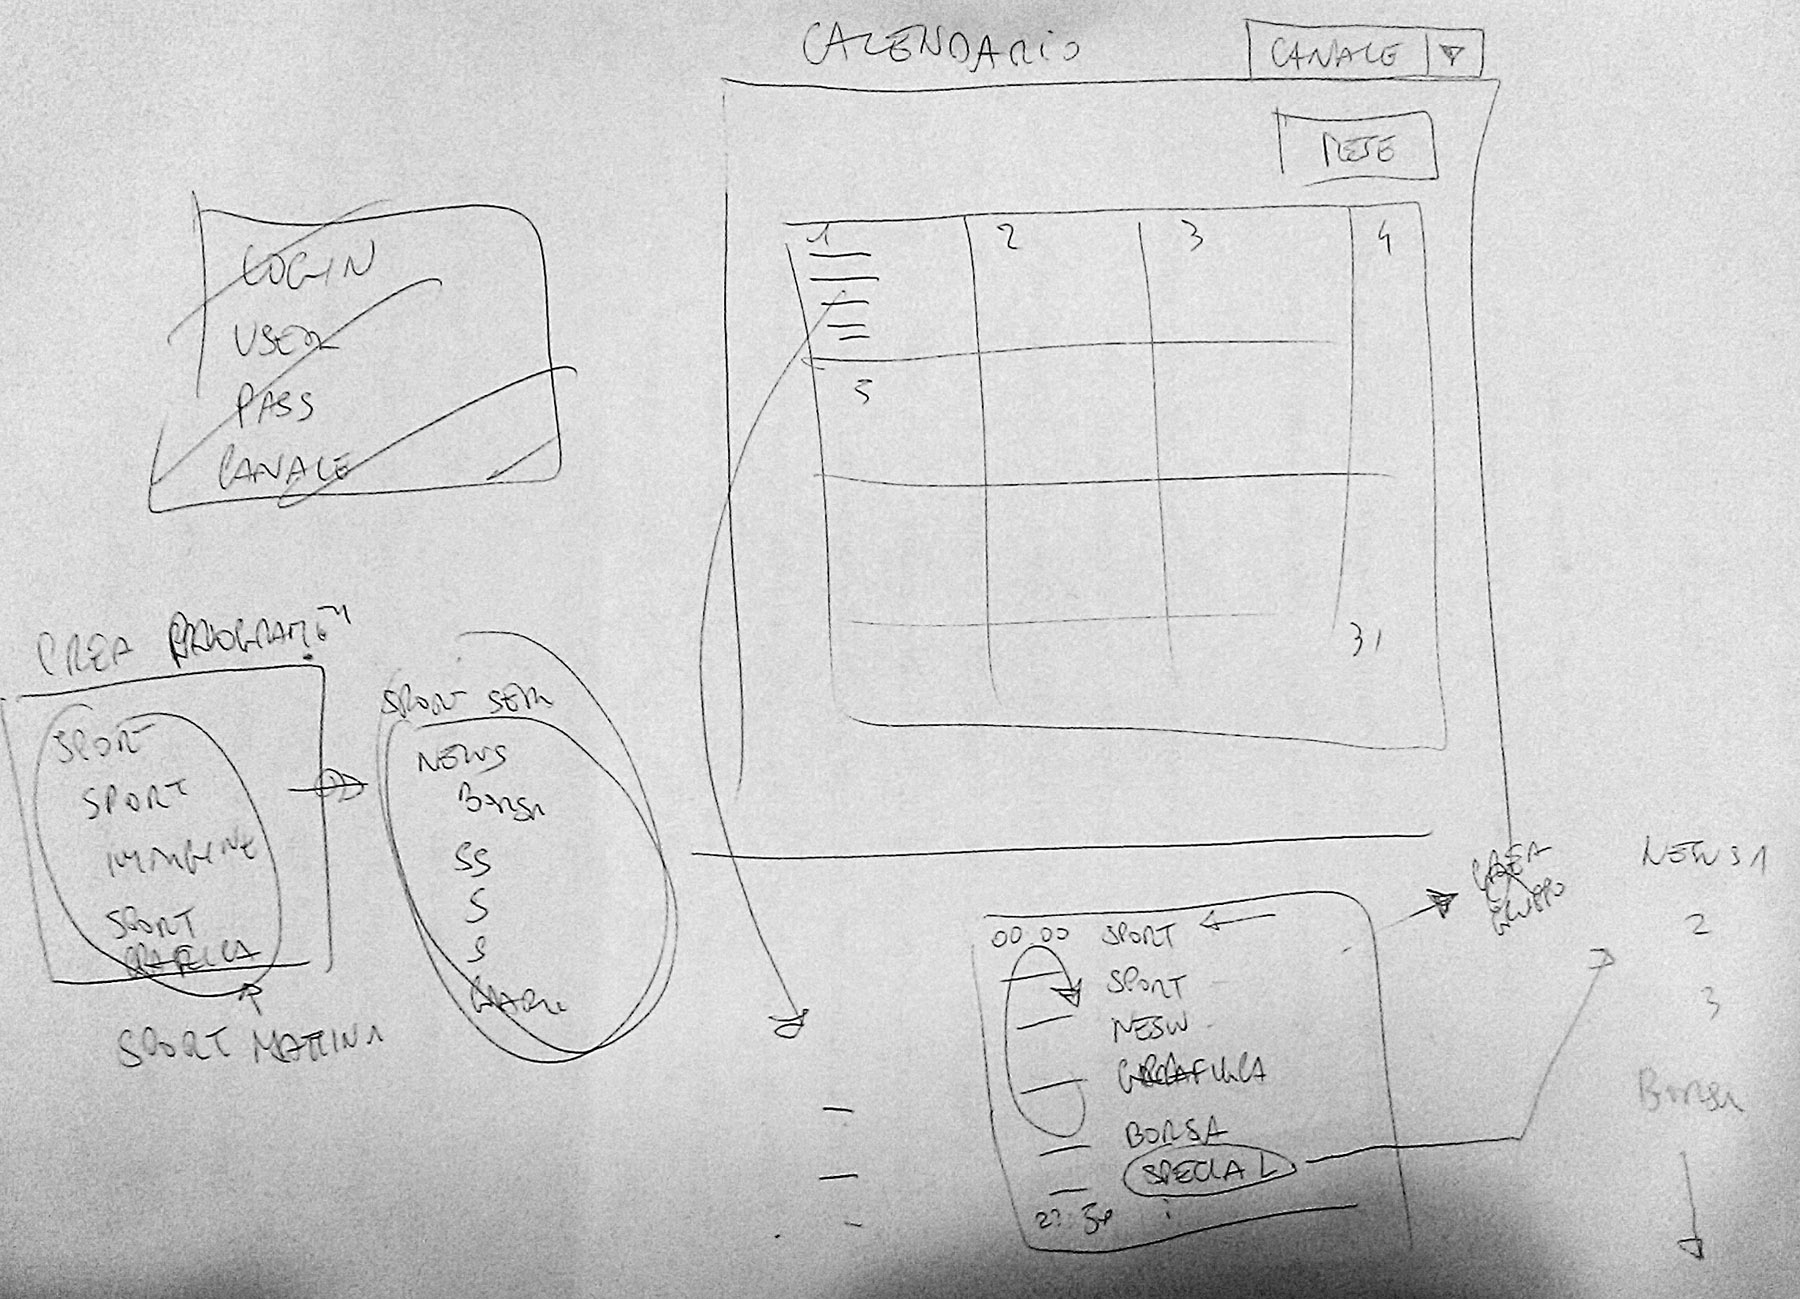 CALENDARIO
CANALE
MESE
1 2 3 4
5
31
LOGIN
USER
PASS
CANALE
CREA
SPORT
SPORT
IMMAGINE
SPORT
GRAFICA
SPORT MATTINA
SPORT SERA
NEWS
BORSA
SS
S
S
00 00 SPORT
SPORT
NESW
GRAFICA
BORSA
SPECIAL
CREA
GRUPPO
NEWS 1
2
3
BORSA